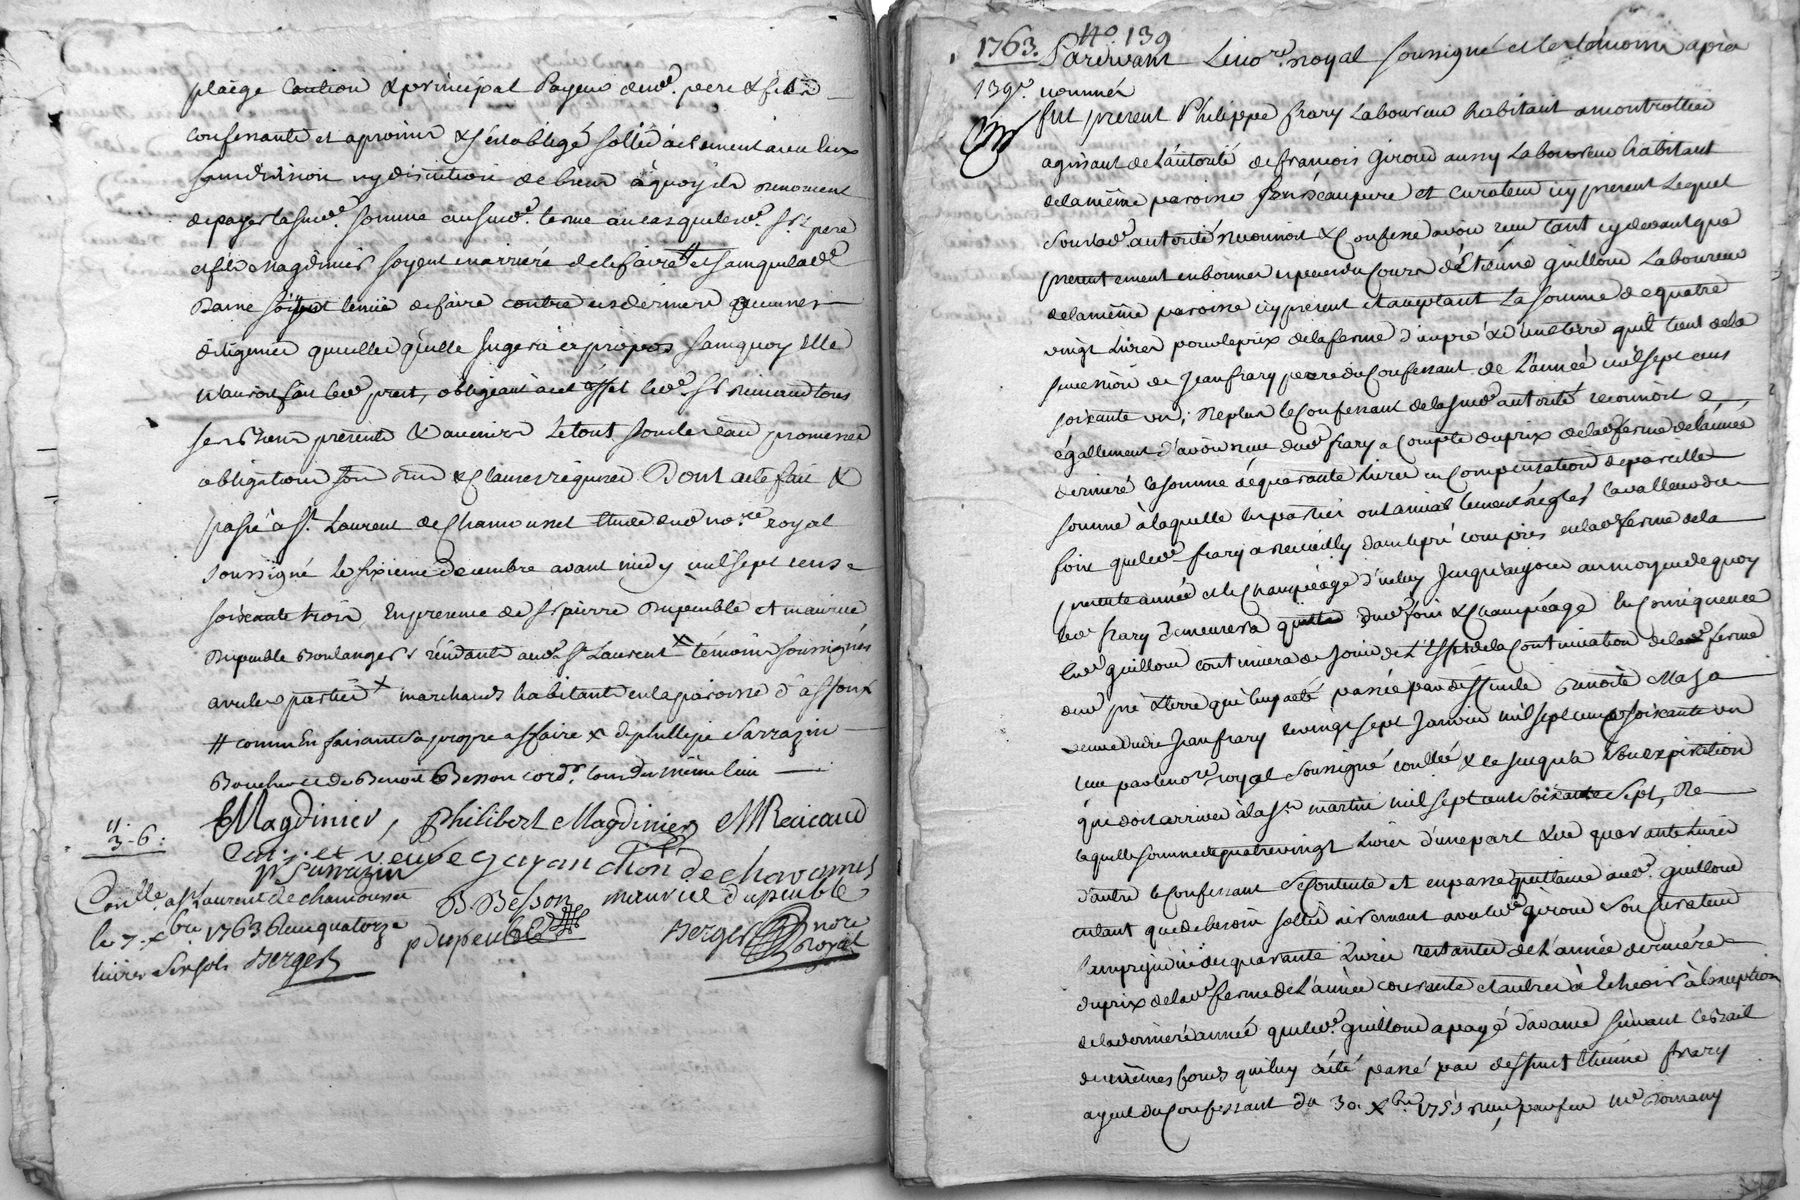 plaige Caution & principal Payeur dud. pere & fils
confessants et a promis & s'est obligé sollidairement avec eux
sans division ny discution de biens à quoy ils renoncent
de payer lasusd.e somme aususd.e terme au cas que lesd. Srs pere
et fils Magdinier soyent en arriéré de le faire # et sans que lad.e
Dame soit tenüe de faire contre ces derniers aucunes
diligences que celles qu'elle jugera à propos sans quoy elle
n'auroit fait led. prest, obligeant à cet effet led. Sr tous
ses biens présents & avenir Le tout sous les peau promesses
obligations & Clauses requises Dont acte fait &
passé à St Laurent de Chamousset Etude dud. no.re royal
soussigné le sixieme decembre avant midy mil sept cens
soixante trois, En presence de Sr pierre Dupeuble et maurice
Dupeuble Boulangers résidants aud. St Laurent x témoins soussignés
avec les parties x marchands habitants en la paroisse d'affoux
# comm'En faisant sa propre affaire x de phillipe Sarrazin
Boucher et de Benoit Besson cord.r tous du même lieu
Magdinier, Philibert Magdinier
veuve guyan chion de chavannes
11.
3-6:
P Sarrazin
B Besson maurice dupeuble
Con.lle a St Laurent de chamousset
le 7. xbre 1763 Reçu quatorze
livres six sols Berger
p dupeuble
Berger nore Royal
1763. No. 139
139e.
Pardevant Le no.re royal soussigné et les témoins après
nommés
fut présent Philippe frary Laboureur habitant a montrottier
agissant de L'autorité de francois Giroud aussy Laboureur habitant
de la même paroisse son beaupere et curateur icy présent Lequel
sous lad.e autorité reconnoit & Confesse avoir reçu tant cy devant que
présentement en bonnes especes du Cours d'Etiénne guilloud Laboureur
de la même paroisse icy présent et acceptant La somme de quatre
vingt Livres pour le prix de la ferme d'un pré & d'une terre qu'il tient de la
succession de Jean frary pere du Confessant de L'année mil sept cens
soixante un; De plus le Confessant de la susd.e autorité reconnoit
égallement d'avoir reçu dud. frary a Compte du prix de lad.e ferme de L'année
derniere la somme de quarante Livres en Compensation de pareille
somme à laquelle les parties ont amiablement réglés la valleur du
foin que led. frary a recueilly dans le pré compris en lad.e ferme de la
présente année et le Champéage d'iceluy jusqu'aujour au moyen de quoy
led. frary demeurera quitte dud. foin & Champéage En Conséquence
led. guilloud continuera de jouir de L'Effet de la Continuation de lad.e ferme
dud. pré & terre qui luy a été passée par deffunte Benoite Maza
veuve dudit Jean frary le vingt sept Janvier mil sept cens soixante un
reçu par le no.re royal soussigné conllé & ce jusqu'à son expiration
qui doit arriver à la St martin mil sept cent soixante sept, De
laquelle somme de quatre vingt Livres d'une part & de quarante Livres
d'autre le Confessant se Contente et en passe quittance aud. guilloud
en tant que de besoin sollidairement avec led. giroud son Curateur
sans préjudice des quarante Livres restantes de L'année derniére
du prix de lad.e ferme de L'année courante et autres à Echeoir à l'exception
de la derniére année que led. guilloud a payé d'avance suivant le Bail
des mêmes fonds qui luy a été passé par deffunt Etienne frary
ayeul du Confessant du 30. xbre 1753 reçu par feu me Romany